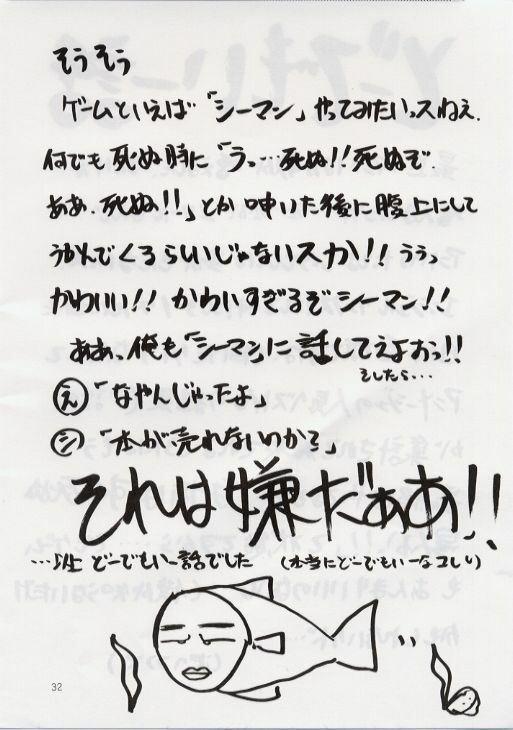 そうそう
ゲームといえば「シーマン」やってみたいっスねぇ.
何でも死ぬ時に「うっ…死ぬ!!死ぬぞ
ああ、死ぬ!!」とか呻いた後に腹上にして
うかんでくるらしいじゃないスか!!うぅっ
かわいい!!かわいすぎるぞシーマン!!
ああ、俺も「シーマン」に話してえよおっ!!
そしたら…
え「なやんじゃったよ。」
シ「本が売れないのかる」
それは嫌だぁあ!!
…以上 どーでもいー話でした (本当にどーでもいーなコレ)
32